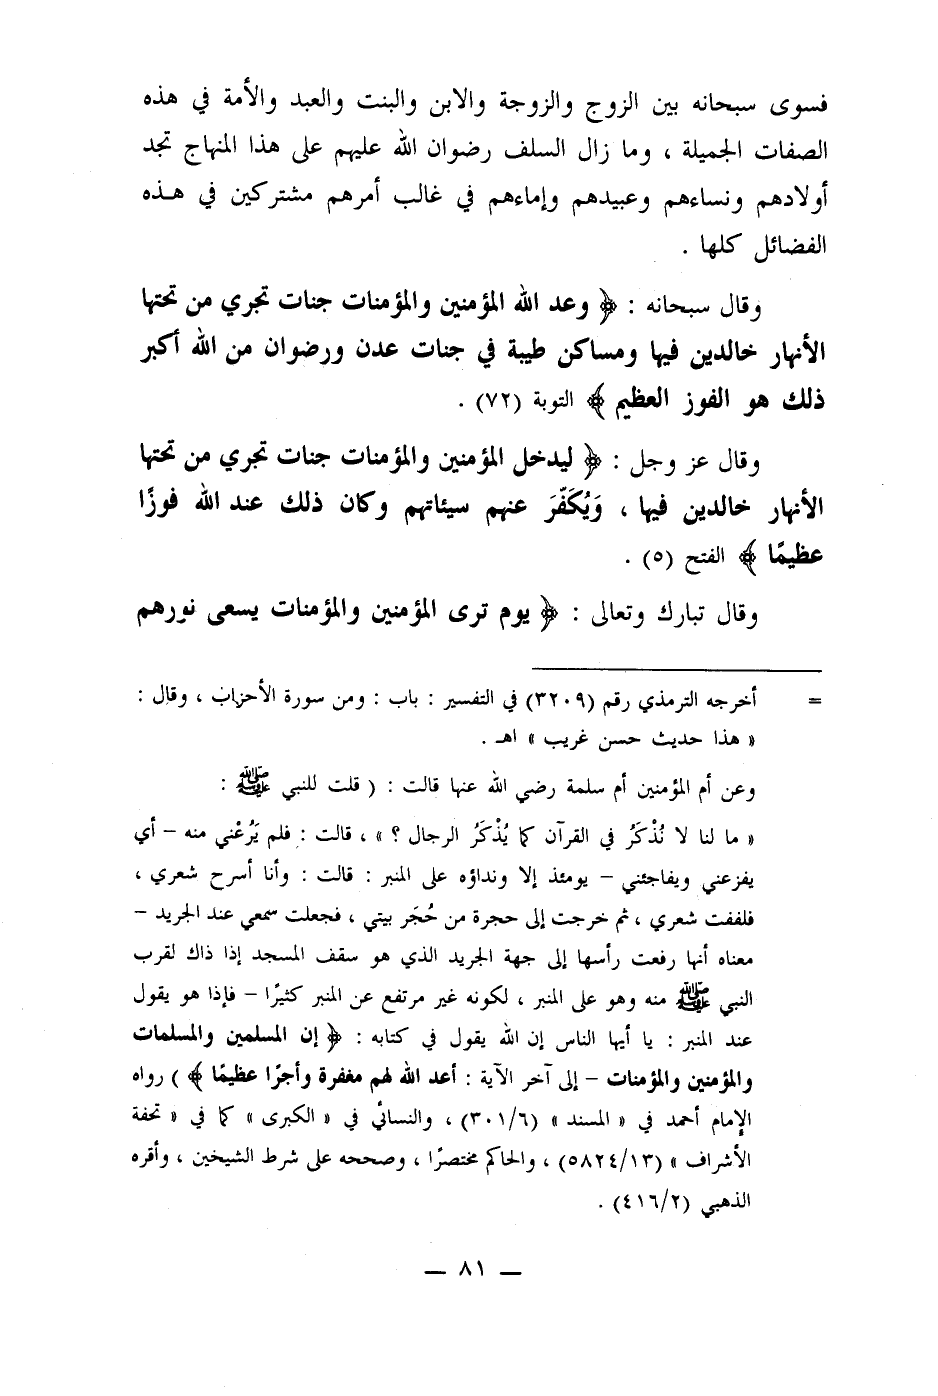 فسوى سبحانه بين الزوج والزوجة والابن والبنت والعبد والأمة في هذه
الصفات الجميلة ، وما زال السلف رضوان الله عليهم على هذا المنهاج تجد
أولادهم ونساءهم وعبيدهم وإماءهم في غالب أمرهم مشتركين في هذه
الفضائل كلها .
وقال سبحانه : ﴿ وعد الله المؤمنين والمؤمنات جنات تجري من تحتها
الأنهار خالدين فيها ومساكن طيبة في جنات عدن ورضوان من الله أكبر
ذلك هو الفوز العظيم ﴾ التوبة (٧٢) .
وقال عز وجل : ﴿ ليدخل المؤمنين والمؤمنات جنات تجري من تحتها
الأنهار خالدين فيها ، وَيُكَفِّرَ عنهم سيئاتهم وكان ذلك عند الله فوزًا
عظيمًا ﴾ الفتح (٥) .
وقال تبارك وتعالى : ﴿ يوم ترى المؤمنين والمؤمنات يسعى نورهم
= أخرجه الترمذي رقم (٣٢٠٩) في التفسير : باب : ومن سورة الأحزاب ، وقال :
« هذا حديث حسن غريب » اهـ .
وعن أم المؤمنين أم سلمة رضي الله عنها قالت : ( قلت للنبي ﷺ :
« ما لنا لا نُذْكَرُ في القرآن كما يُذْكَرُ الرجال ؟ » ، قالت : فلم يَرُعْني منه – أي
يفزعني ويفاجئني – يومئذ إلا ونداؤه على المنبر : قالت : وأنا أسرح شعري ،
فلففت شعري ، ثم خرجت إلى حجرة من حُجَر بيتي ، فجعلت سمعي عند الجريد –
معناه أنها رفعت رأسها إلى جهة الجريد الذي هو سقف المسجد إذا ذاك لقرب
النبي ﷺ منه وهو على المنبر ، لكونه غير مرتفع عن المنبر كثيرًا – فإذا هو يقول
عند المنبر : يا أيها الناس إن الله يقول في كتابه : ﴿ إن المسلمين والمسلمات
والمؤمنين والمؤمنات – إلى آخر الآية : أعد الله لهم مغفرة وأجرًا عظيمًا ﴾ ) رواه
الإمام أحمد في « المسند » (٣٠١/٦) ، والنسائي في « الكبرى » كما في « تحفة
الأشراف » (٥٨٢٤/١٣) ، والحاكم مختصرًا ، وصححه على شرط الشيخين ، وأقره
الذهبي (٤١٦/٢) .
— ٨١ —